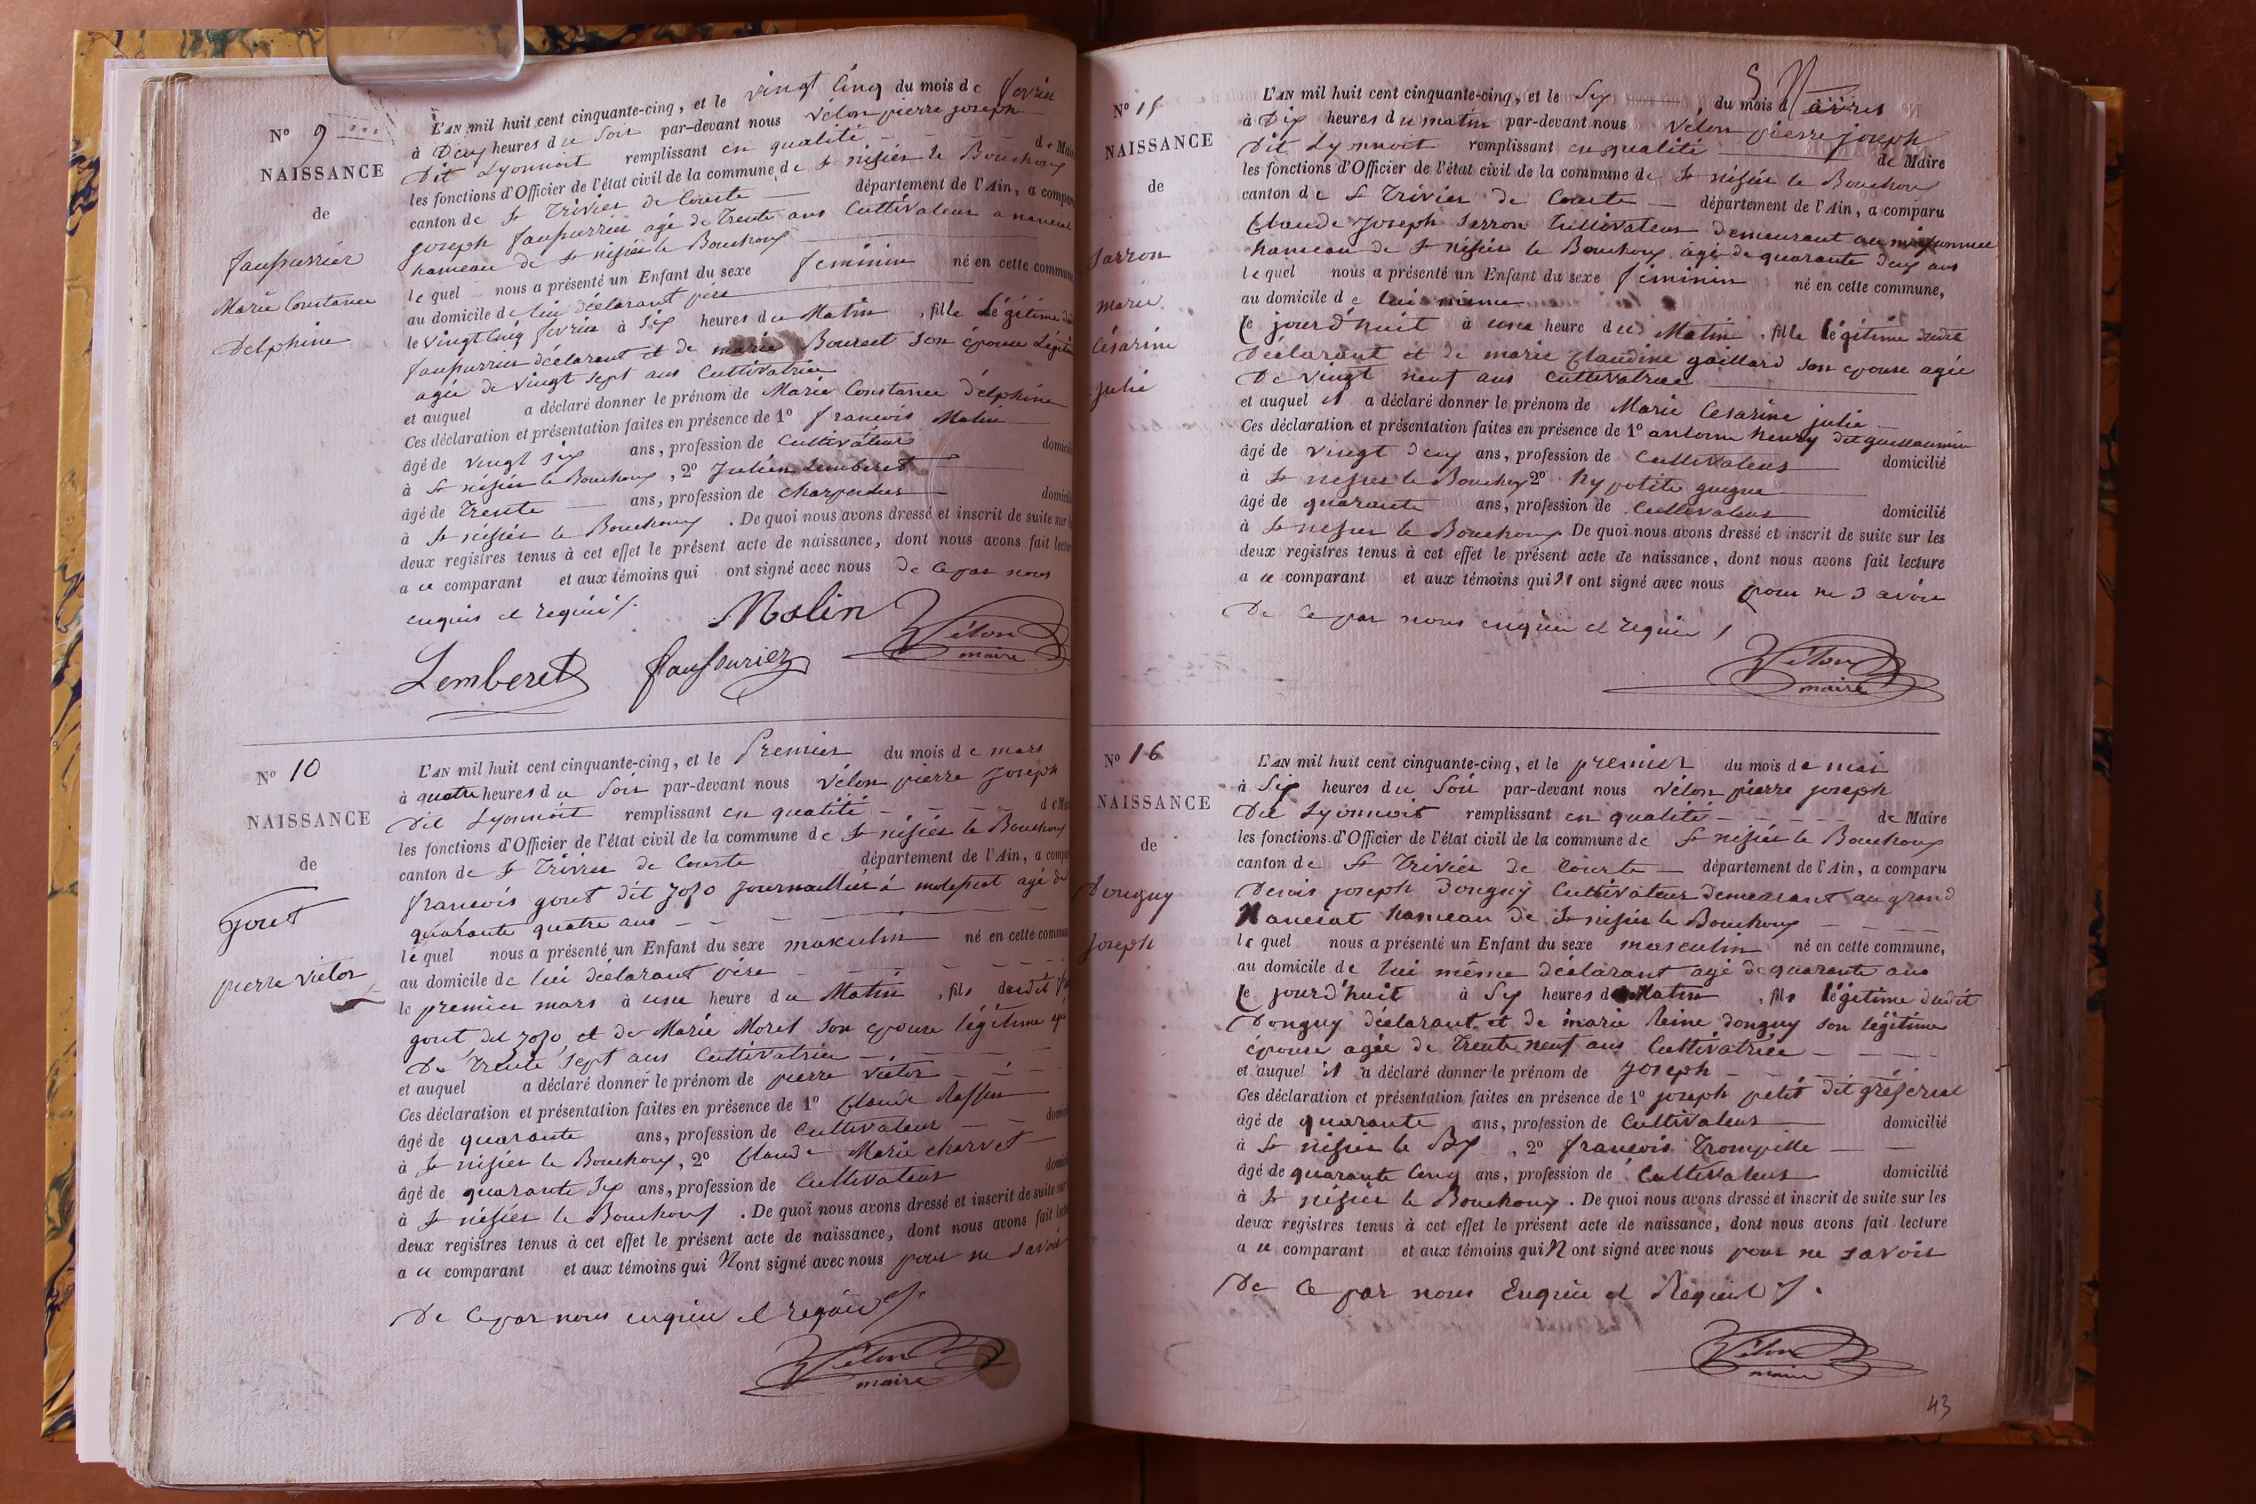 N° 9
NAISSANCE
de
faussurier
Marie Constance
Delphine
L'AN mil huit cent cinquante-cinq, et le vingt cinq du mois de fevrier
à Deux heures du Soir par-devant nous Vélon pierre joseph
Dit Lyonnoit remplissant en qualité de Mai
les fonctions d'Officier de l'état civil de la commune de St nisier le Bouchoux
canton de St Trivier de Courte département de l'Ain, a compa
joseph faussurier agé de Trente ans Cultivateur a
hameau de St nisier le Bouchoux
lequel nous a présenté un Enfant du sexe feminin né en cette commune
au domicile de lui déclarant père
le vingt Cinq fevrier à Six heures du Matin, fille Légitime du
faussurier déclarant et de marie Bouret Son épouse Légit
agée de vingt sept ans Cultivatrice
et auquel a déclaré donner le prénom de Marie Constance délphine
Ces déclaration et présentation faites en présence de 1° francois Molin
âgé de vingt Six ans, profession de Cultivateur domici
à St nisier le Bouchoux, 2° Julien Lemberet
âgé de Trente ans, profession de charpentier domici
à St nisier le Bouchoux. De quoi nous avons dressé et inscrit de suite sur
deux registres tenus à cet effet le présent acte de naissance, dont nous avons fait lect
a ce comparant et aux témoins qui ont signé avec nous de Ce par nous
enquis et requis
Molin
Vélon
maire
Lemberet
faussurier
N° 10
NAISSANCE
de
gout
pierre victor
L'AN mil huit cent cinquante-cinq, et le Premier du mois de mars
à quatre heures du Soir par-devant nous Vélon pierre joseph
Dit Lyonnoit remplissant en qualité de Ma
les fonctions d'Officier de l'état civil de la commune de St nisier le Bouchoux
canton de St Trivier de Courte département de l'Ain, a comp
francois gout dit jojo journaillier à agé de
quarante quatre ans
lequel nous a présenté un Enfant du sexe maskulin né en cette commu
au domicile de lui déclarant père
le premier mars à une heure du Matin, fils dudit
gout dit jojo et de Marie Morel Son epouse légitime
De Trente Sept ans Cultivatrice
et auquel a déclaré donner le prénom de pierre victor
Ces déclaration et présentation faites en présence de 1° Claude
âgé de quarante ans, profession de Cultivateur domi
à St nisier le Bouchoux, 2° Claude Marie charvet
âgé de quarante Six ans, profession de Cultivateur domic
à St nisier le Bouchoux. De quoi nous avons dressé et inscrit de suite sur
deux registres tenus à cet effet le présent acte de naissance, dont nous avons fait lect
a ce comparant et aux témoins qui N'ont signé avec nous pour ne savoir
De Ce par nous enquis et requis
Vélon
maire
N° 15
NAISSANCE
de
Sarron
marie
Césarine
Julie
L'AN mil huit cent cinquante-cinq, et le Six du mois d'avril
à Dix heures du matin par-devant nous Vélon pierre joseph
Dit Lyonnoit remplissant en qualité de Maire
les fonctions d'Officier de l'état civil de la commune de St nisier le Bouchoux
canton de St Trivier de Courte département de l'Ain, a comparu
Claude Joseph Sarron Cultivateur demeurant au
hameau de St nisier le Bouchoux agé de quarante deux ans
lequel nous a présenté un Enfant du sexe féminin né en cette commune,
au domicile de lui même
Ce jourd'huit à une heure du Matin, fille légitime dudit
Déclarant et de marie Claudine gaillard son epouse agée
De vingt neuf ans Cultivatrice
et auquel il a déclaré donner le prénom de Marie Cesarine julie
Ces déclaration et présentation faites en présence de 1° antoine henry dit guillaumin
âgé de vingt deux ans, profession de Cultivateur domicilié
à St nisier le Bouchoux 2° hypolite
âgé de quarante ans, profession de Cultivateur domicilié
à St nisier le Bouchoux De quoi nous avons dressé et inscrit de suite sur les
deux registres tenus à cet effet le présent acte de naissance, dont nous avons fait lecture
a ce comparant et aux témoins qui N'ont signé avec nous pour ne Savoir
De Ce par nous enquis et requis
Vélon
maire
N° 16
NAISSANCE
de
Donguy
Joseph
L'AN mil huit cent cinquante-cinq, et le premier du mois de mai
à Six heures du Soir par-devant nous Vélon pierre joseph
Dit Lyonnoit remplissant en qualité de Maire
les fonctions d'Officier de l'état civil de la commune de St nisier le Bouchoux
canton de St Trivier de Courte département de l'Ain, a comparu
Denis joseph Donguy Cultivateur Demeurant au grand
hameau de St nisier le Bouchoux
lequel nous a présenté un Enfant du sexe masculin né en cette commune,
au domicile de lui même déclarant agé de quarante ans
Ce jourd'huit à Six heures du Matin, fils légitime dudit
Donguy déclarant et de marie Reine donguy son légitime
épouse agée de Trente neuf ans Cultivatrice
et auquel il a déclaré donner le prénom de Joseph
Ces déclaration et présentation faites en présence de 1° joseph petit dit
âgé de quarante ans, profession de Cultivateur domicilié
à St nisier le Bx, 2° francois Trompille
âgé de quarante Cinq ans, profession de Cultivateur domicilié
à St nisier le Bouchoux. De quoi nous avons dressé et inscrit de suite sur les
deux registres tenus à cet effet le présent acte de naissance, dont nous avons fait lecture
a ce comparant et aux témoins qui N'ont signé avec nous pour ne savoir
De Ce par nous Enquis et Requis
Vélon
maire
43